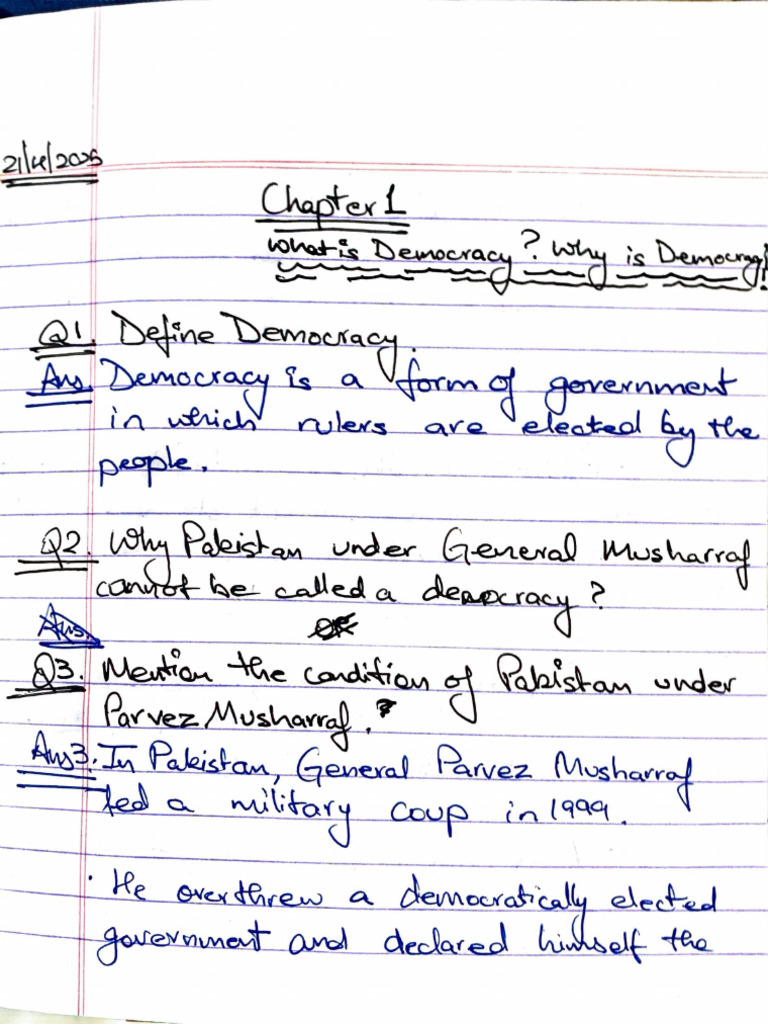 21/4/2025
Chapter 1
What is Democracy? Why is Democracy?
Q1. Define Democracy.
Ans. Democracy is a form of government
in which rulers are elected by the
people.
Q2. Why Pakistan under General Musharraf
cannot be called a democracy?
Ans.
OR
Q3. Mention the condition of Pakistan under
Parvez Musharraf.?
Ans3. In Pakistan, General Parvez Musharraf
led a military coup in 1999.
· He overthrew a democratically elected
government and declared himself the